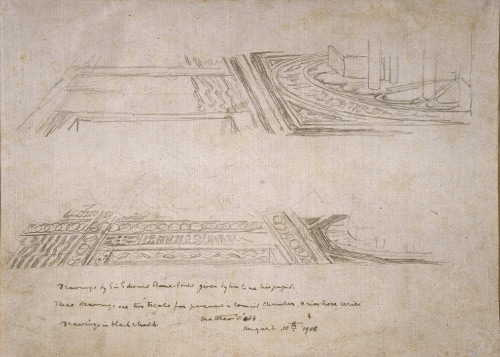 Drawings by Sir Edward Burne-Jones given by him to me his pupil.
These drawings are two for pavement in Council Chamber, Briar Rose series
Drawings in black chalk
Matthew Webb
August 10th 1908